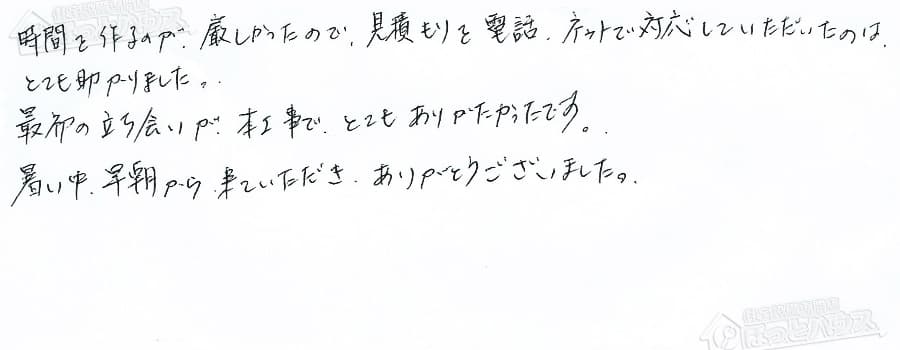 時間を作るのが、厳しかったので、見積もりを電話、ネットで対応していただいたのは、
とても助かりました。
最初の立ち会いが、本工事で、とてもありがたかったです。
暑い中、早朝から、来ていただき、ありがとうございました。
ほっとハウス